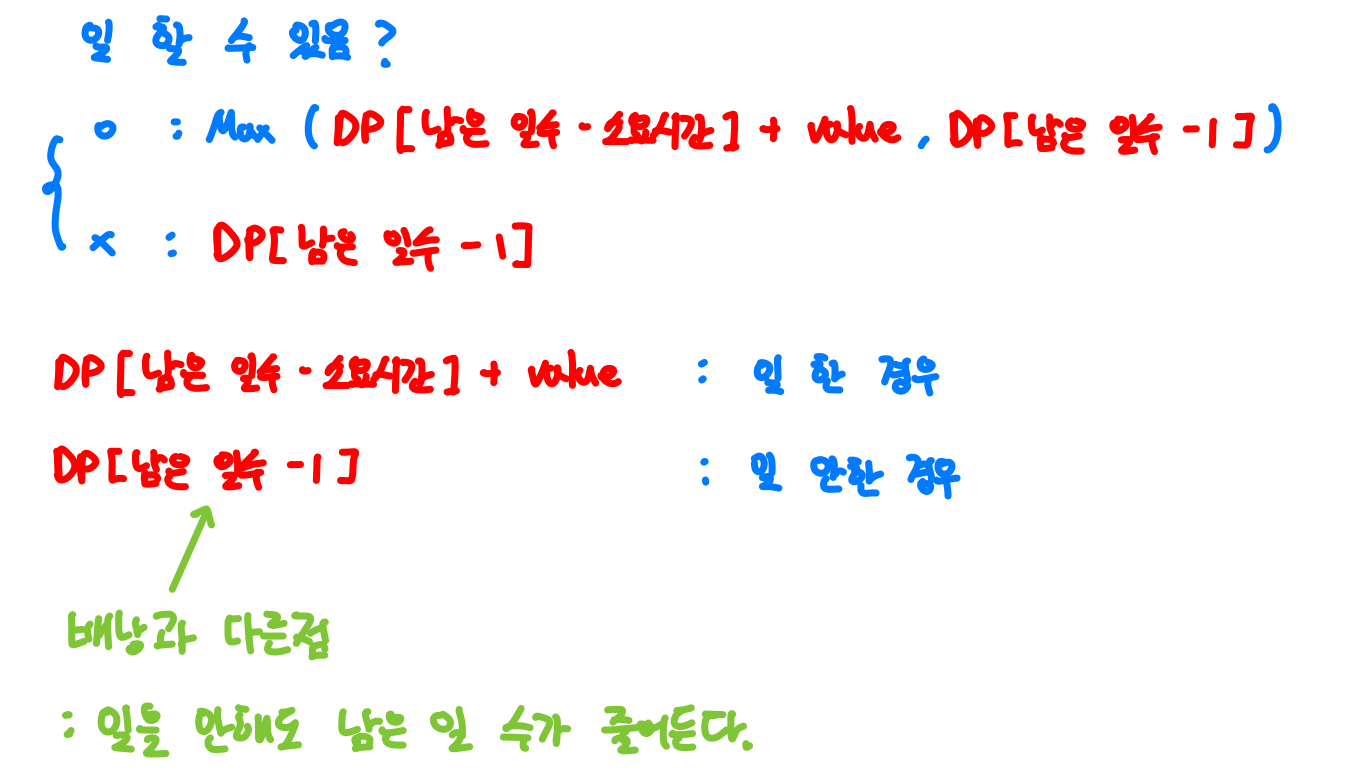 일 할 수 있음?
o : Max (DP[남은 일수 - 소요시간] + value, DP[남은 일수 -1])
x : DP[남은 일수 -1]
DP[남은 일수 - 소요시간] + value : 일 한 경우
DP[남은 일수 -1] : 일 안한 경우
배낭과 다른점
: 일을 안해도 남은 일 수가 줄어든다.